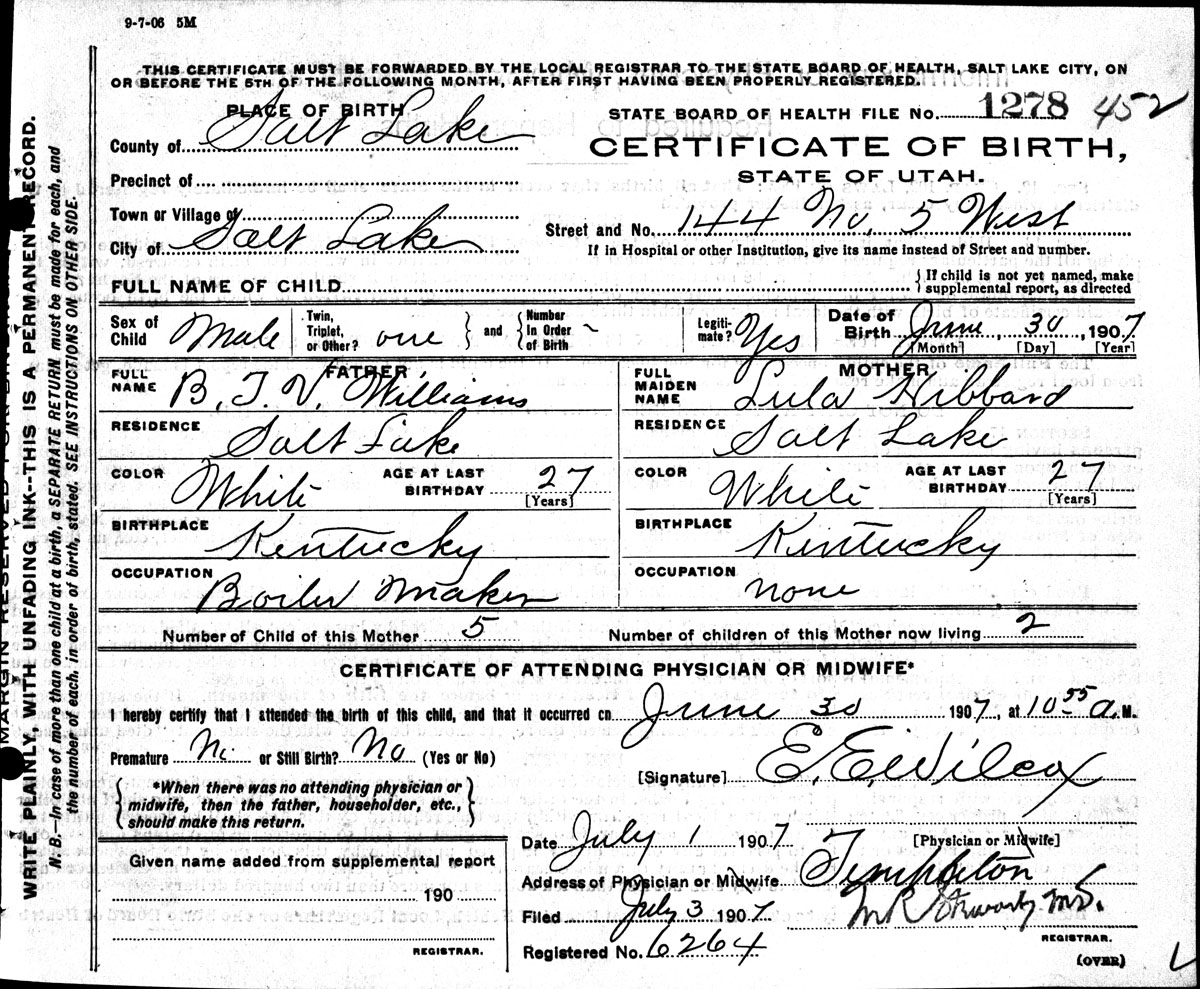 9-7-06 5M
THIS CERTIFICATE MUST BE FORWARDED BY THE LOCAL REGISTRAR TO THE STATE BOARD OF HEALTH, SALT LAKE CITY, ON
OR BEFORE THE 5TH OF THE FOLLOWING MONTH, AFTER FIRST HAVING BEEN PROPERLY REGISTERED.
PLACE OF BIRTH
STATE BOARD OF HEALTH FILE No. 1278 452
County of Salt Lake
CERTIFICATE OF BIRTH,
STATE OF UTAH.
Precinct of
Town or Village of
Street and No. 144 No. 5 West
City of Salt Lake
If in Hospital or other Institution, give its name instead of Street and number.
FULL NAME OF CHILD
{If child is not yet named, make
supplemental report, as directed
Sex of Child Male
Twin, Triplet, or Other? one } and { Number In Order of Birth ~
Legiti-mate? Yes
Date of Birth June 30 1907
[Month] [Day] [Year]
FATHER
FULL NAME B. T. V. Williams
RESIDENCE Salt Lake
COLOR White AGE AT LAST BIRTHDAY 27 [Years]
BIRTHPLACE Kentucky
OCCUPATION Boiler Maker
MOTHER
FULL MAIDEN NAME Lula Hibbard
RESIDENCE Salt Lake
COLOR White AGE AT LAST BIRTHDAY 27 [Years]
BIRTHPLACE Kentucky
OCCUPATION none
Number of Child of this Mother 5 Number of children of this Mother now living 2
CERTIFICATE OF ATTENDING PHYSICIAN OR MIDWIFE*
I hereby certify that I attended the birth of this child, and that it occurred on June 30 1907, at 10 55 A. M.
Premature No or Still Birth? No (Yes or No)
[Signature] E. E. Wilcox
{*When there was no attending physician or
midwife, then the father, householder, etc.,
should make this return.}
[Physician or Midwife]
Date July 1 1907
Address of Physician or Midwife Templeton
Filed July 3 1907 M R Stewart M.D.
REGISTRAR.
Registered No. 6264
(OVER)
Given name added from supplemental report
190
REGISTRAR.
MARGIN RESERVED FOR
WRITE PLAINLY, WITH UNFADING INK--THIS IS A PERMANENT RECORD.
N. B.--In case of more than one child at a birth, a SEPARATE RETURN must be made for each, and
the number of each, in order of birth, stated. SEE INSTRUCTIONS ON OTHER SIDE.